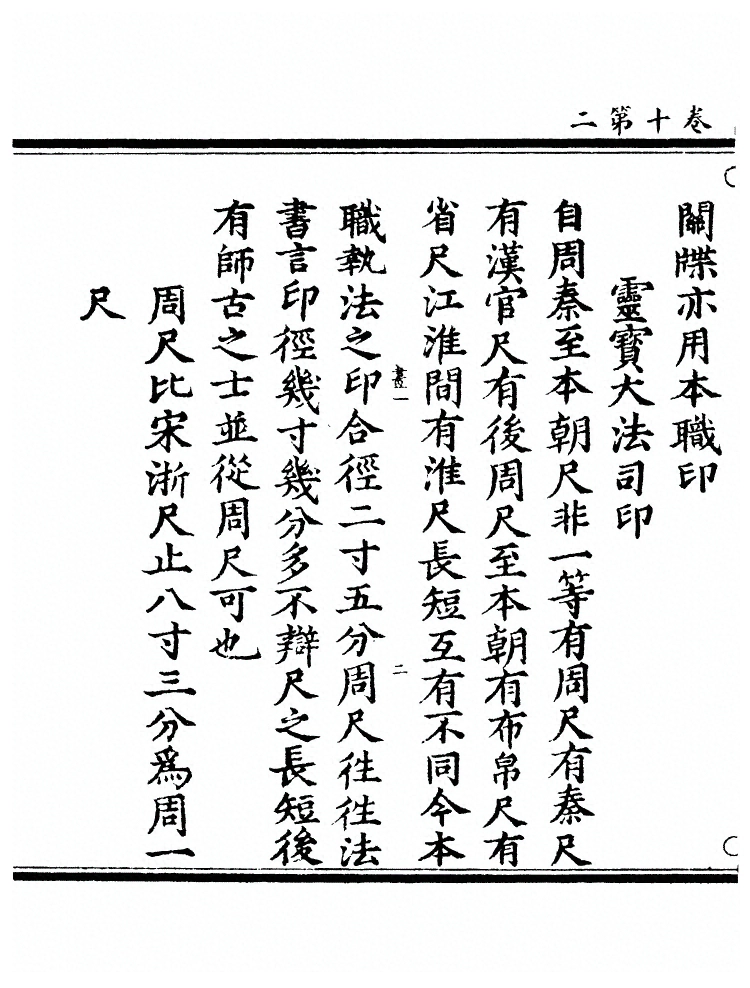 卷十第二
關牒亦用本職印
靈寶大法司印
自周秦至本朝尺非一等有周尺有秦尺
有漢官尺有後周尺至本朝有布帛尺有
省尺江淮間有淮尺長短互有不同今本
畫一
二
職執法之印合徑二寸五分周尺徃徃法
書言印徑幾寸幾分多不辯尺之長短後
有師古之士並從周尺可也
周尺比宋浙尺止八寸三分爲周一
尺